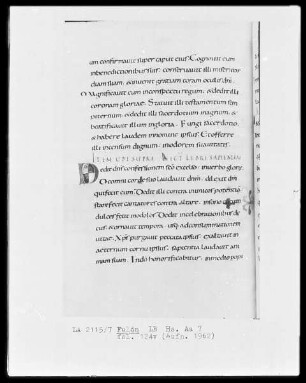 am confirmavit super caput eius. Cognovit eum
in benedictionibus suis. conservavit illi misericor
diam suam. & invenit gratiam coram oculis dni.
Magnificavit eum in conspectu regum. & dedit illi
coronam gloriae. Statuit illi testamentum sem
piternum. & dedit illi sacerdotium magnum. &
beatificavit illum in gloria. Fungi sacerdotio.
& habere laudem in nomine ipsius. Et offerre
illi incensum dignum. in odorem suavitatis.
ITEM UBI SUPRA LECT LIBRI SAPIENTIAE
Dedit dns confessionem sco & excelso. in verbo gloriae.
De omni corde suo laudavit dnm. & dilexit dm
qui fecit eum. Dedit illi contra inimicos potentia.
& stare fecit cantatores contra altare. & in sono eorum
dulces fecit modulos. Dedit in celebrationibus de
cus. & ornavit tempora usq; ad consummationem
vitae. Xps purgavit peccata ipsius. & exaltavit in
aeternum cornu ipsius. sapientia laudabit ani
mam suam. & in do honorificabitur. & in medio popu
LA 2115/7 Fulda LB Hs. Aa 7
Fol. 124v (Aufn. 1962)